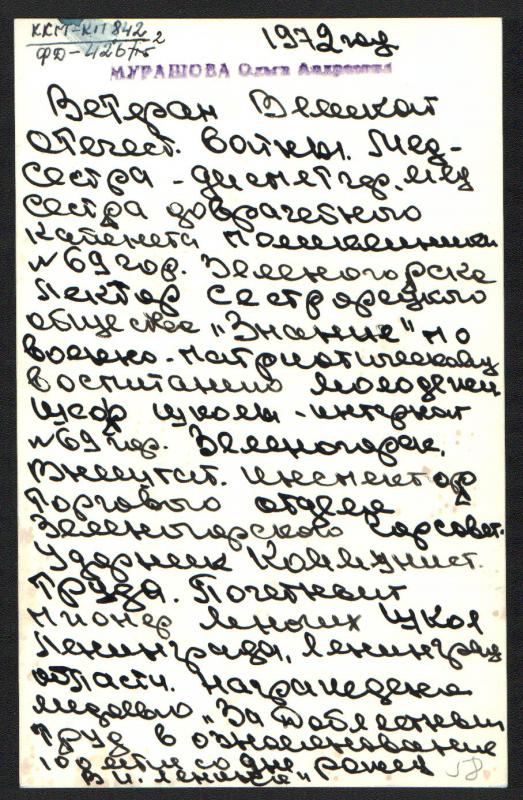 ККМ-КП 842
ФД-426/15 2
1972 год
МУРАШОВА Ольга Андреевна
Ветеран Великой
отечест. войны. Мед-
сестра - диспетчер, мед
сестра доврачебного
кабинета поликлиники
№69 гор. Зеленогорска
Лектор Сестрорецкого
общества "Знание" по
военно-патриотическому
воспитанию молодежи
Шеф школы-интернат
№69 гор. Зеленогорск.
Внештат. инспектор
Торгового отдела
Зеленогорского горсовет.
Ударник Коммунист.
труда. Почетный
пионер многих школ
Ленинграда, Ленинград
области. Награждена
медалью "За доблестный
труд в ознаменование
100 летие со дня рожд
В И. Ленина"
58